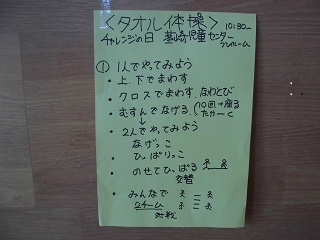 ＜タオル体操＞ 10:30～
チャレンジの日 児童センター
プレイルーム
① 1人でやってみよう
・上、下でまわす
・クロスでまわす、なわとび
・むすんでなげる (10回→座る
たかーく
↓
・2人でやってみよう
なげっこ
ひっぱりっこ
・のせてひっぱる
交替
・みんなで
2チーム
対戦